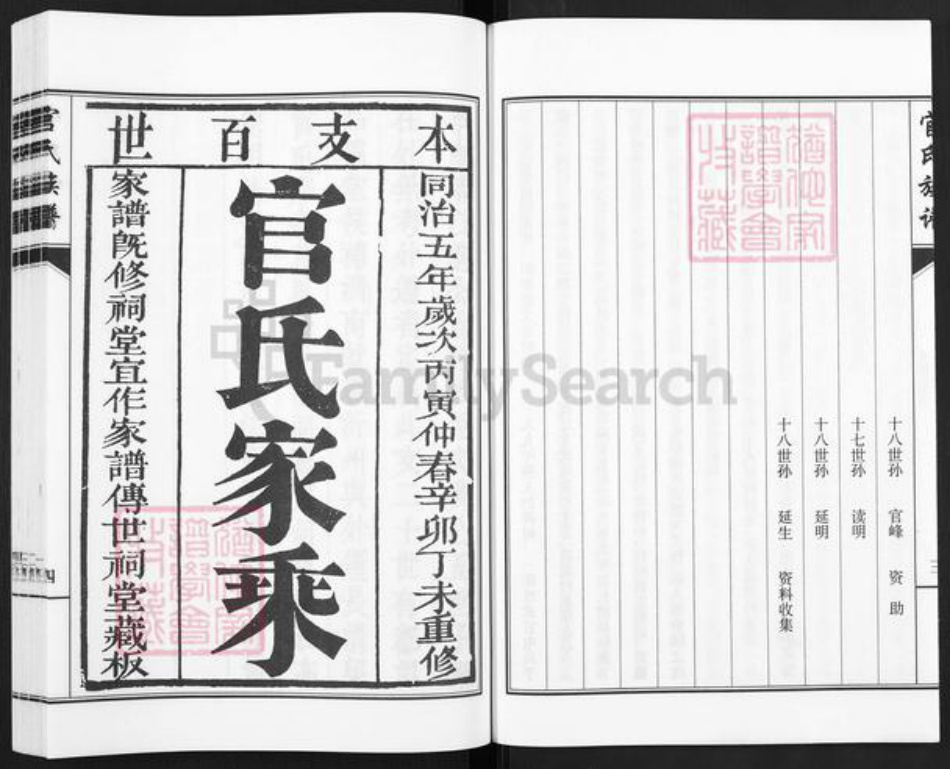 十八世孙 官峰 资助
十七世孙 读明
十八世孙 延明
十八世孙 延生 资料收集
三
本支百世
同治五年歲次丙寅仲春辛卯丁未重修
官氏家乘
家譜既修祠堂宜作家譜傳世祠堂藏板
四
官氏族谱
FamilySearch